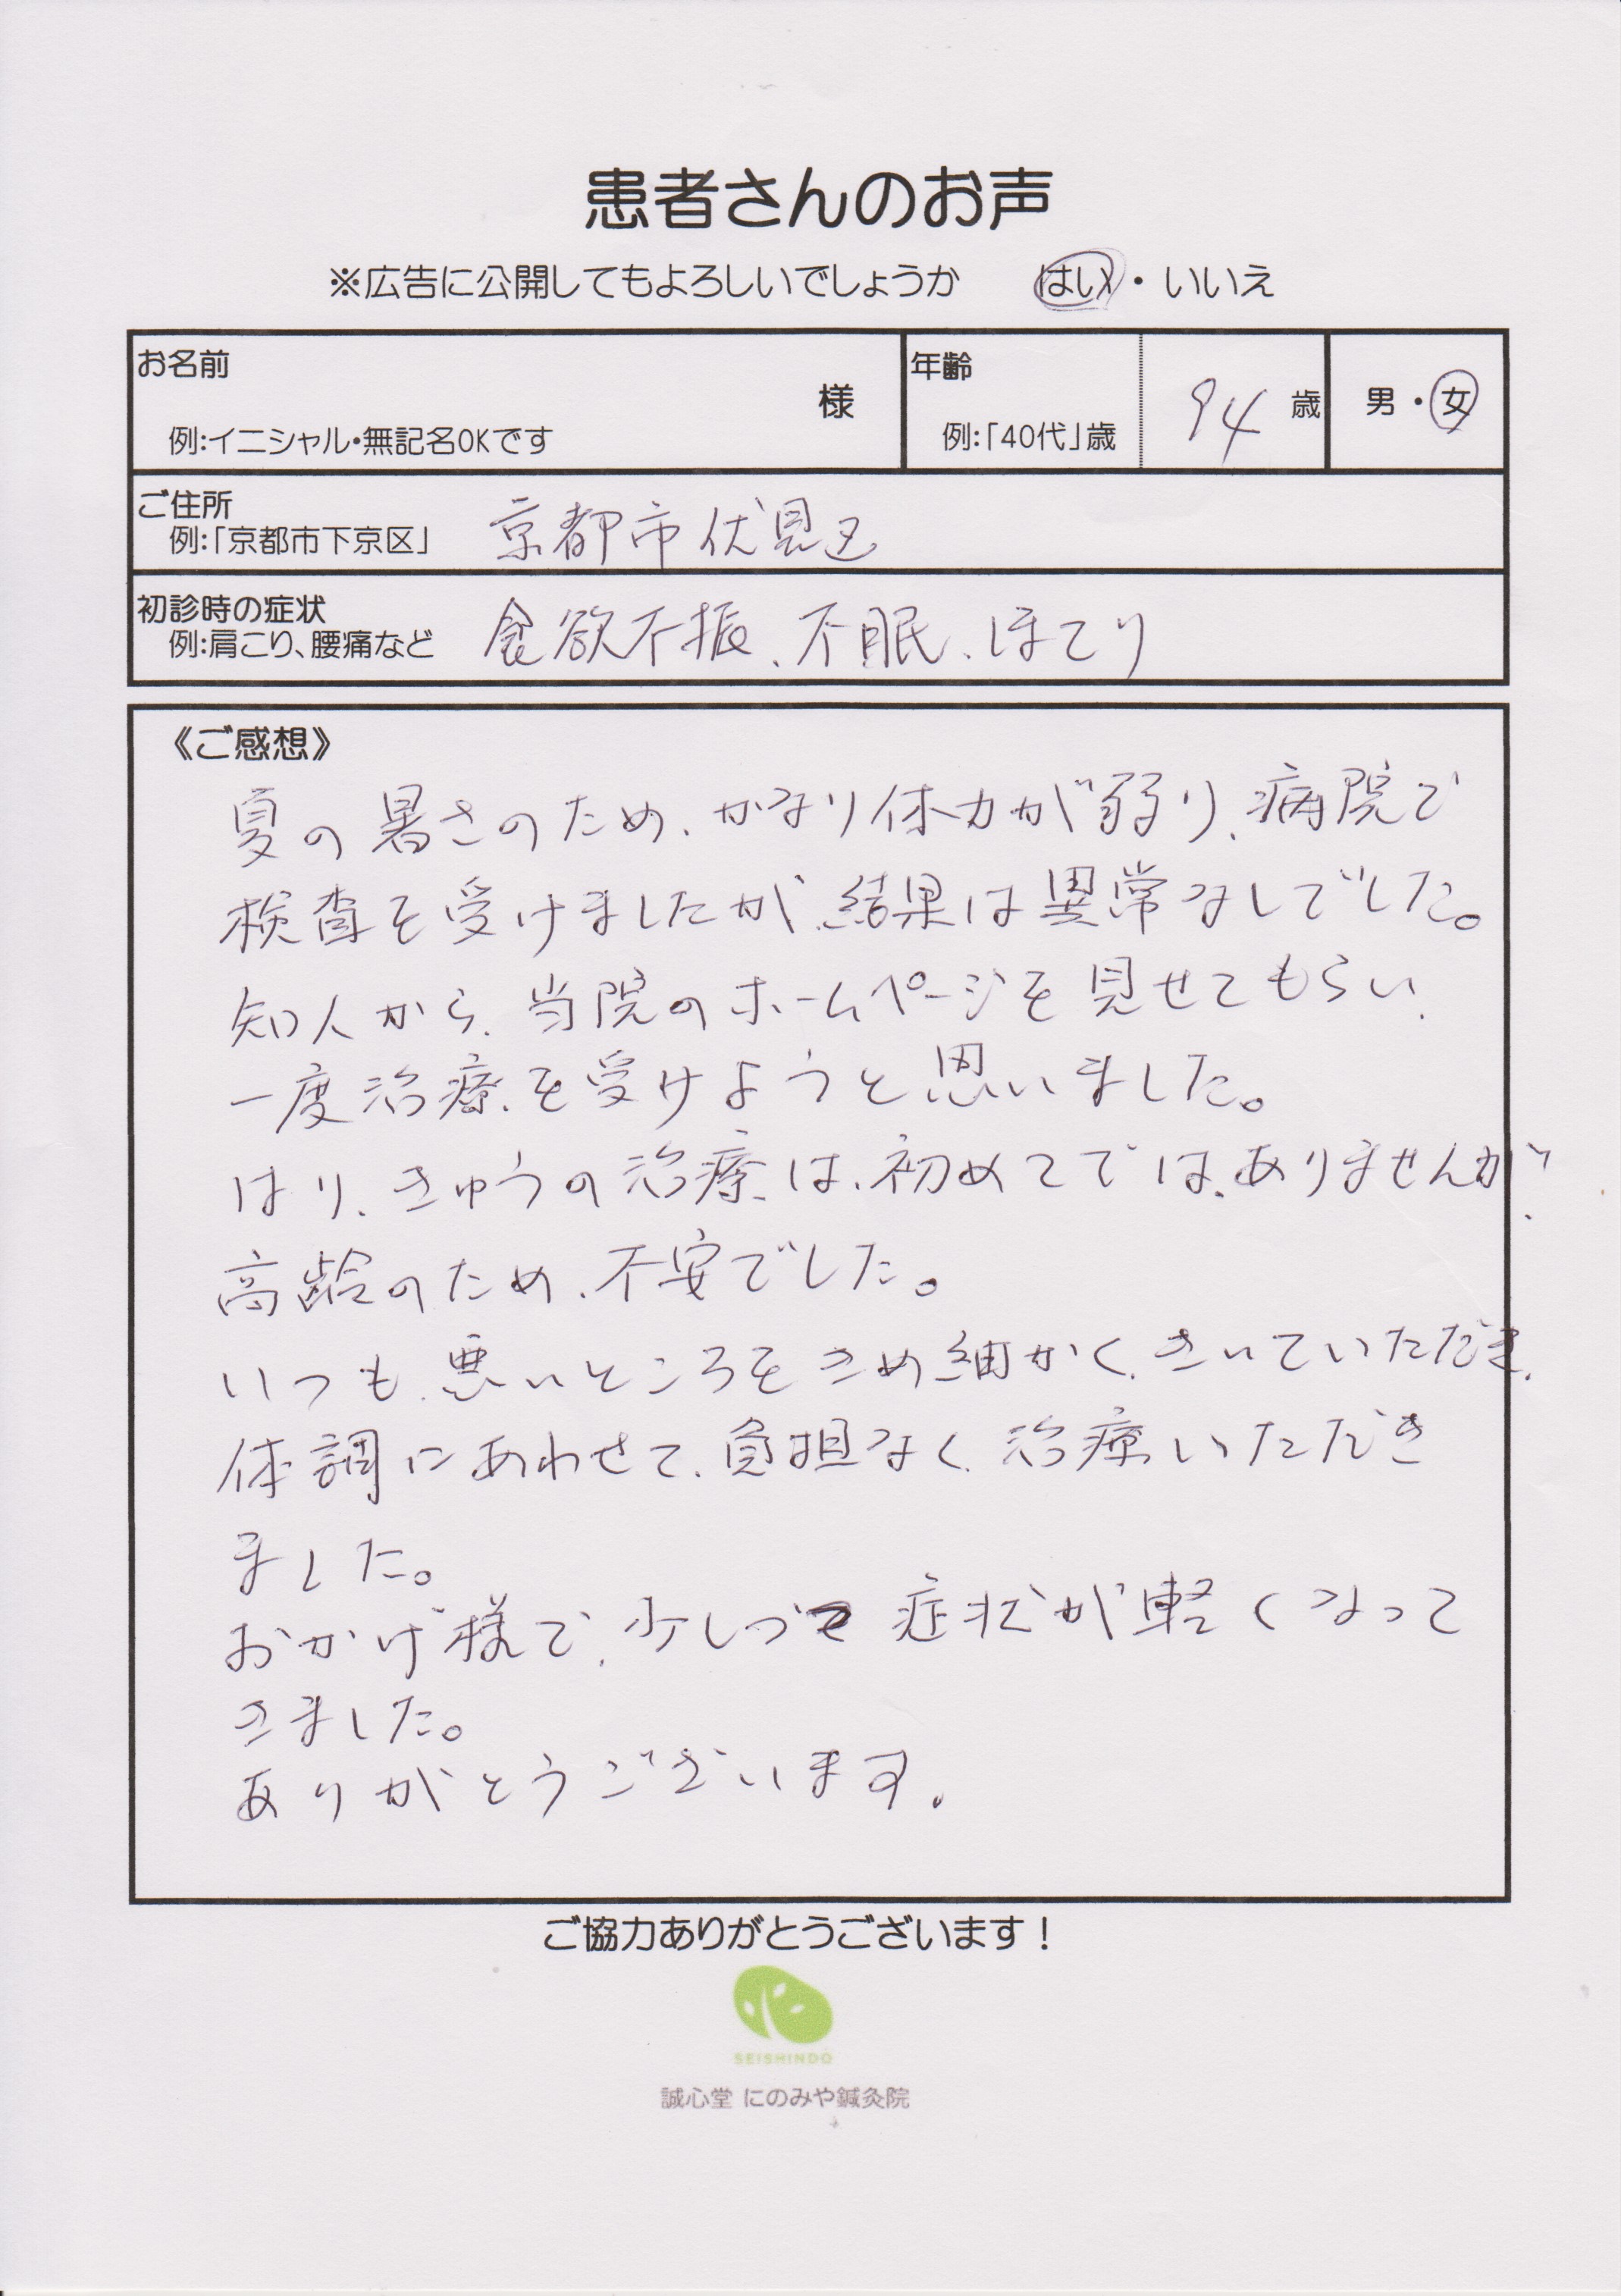 患者さんのお声
※広告に公開してもよろしいでしょうか はい・いいえ
お名前
様
例:イニシャル・無記名OKです
年齢
例:「40代」歳
94 歳
男・女
ご住所
例:「京都市下京区」
京都市伏見区
初診時の症状
例:肩こり、腰痛など
食欲不振、不眠、ほてり
《ご感想》
夏の暑さのため、かなり体力が弱り、病院で
検査を受けましたが、結果は異常なしでした。
知人から、当院のホームページを見せてもらい、
一度治療を受けようと思いました。
はり、きゅうの治療は、初めてでは、ありませんが、
高齢のため、不安でした。
いつも、悪いところをきめ細かく、きいていただき、
体調にあわせて、負担なく、治療いただき
ました。
おかげ様で、少しづつ症状が軽くなって
きました。
ありがとうございます。
ご協力ありがとうございます！
SEISHINDO
誠心堂 にのみや鍼灸院